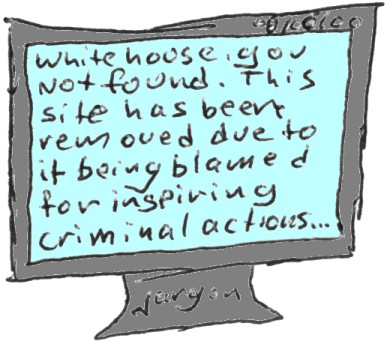 whitehouse.gov
not found. This
site has been
removed due to
it being blamed
for inspiring
criminal actions...
jargon